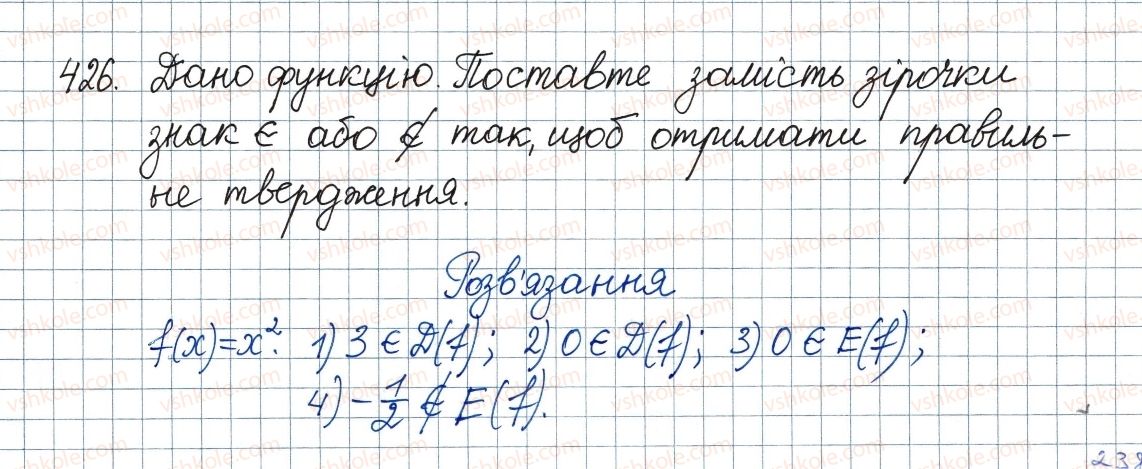 426. Дано функцію. Поставте замість зірочки
знак ∈ або ∉ так, щоб отримати правиль-
не твердження.
Розв'язання
f(x)=x². 1) 3 ∈ D(f); 2) 0 ∈ D(f); 3) 0 ∈ E(f);
4) -1/2 ∉ E(f).
238
vshkole.com